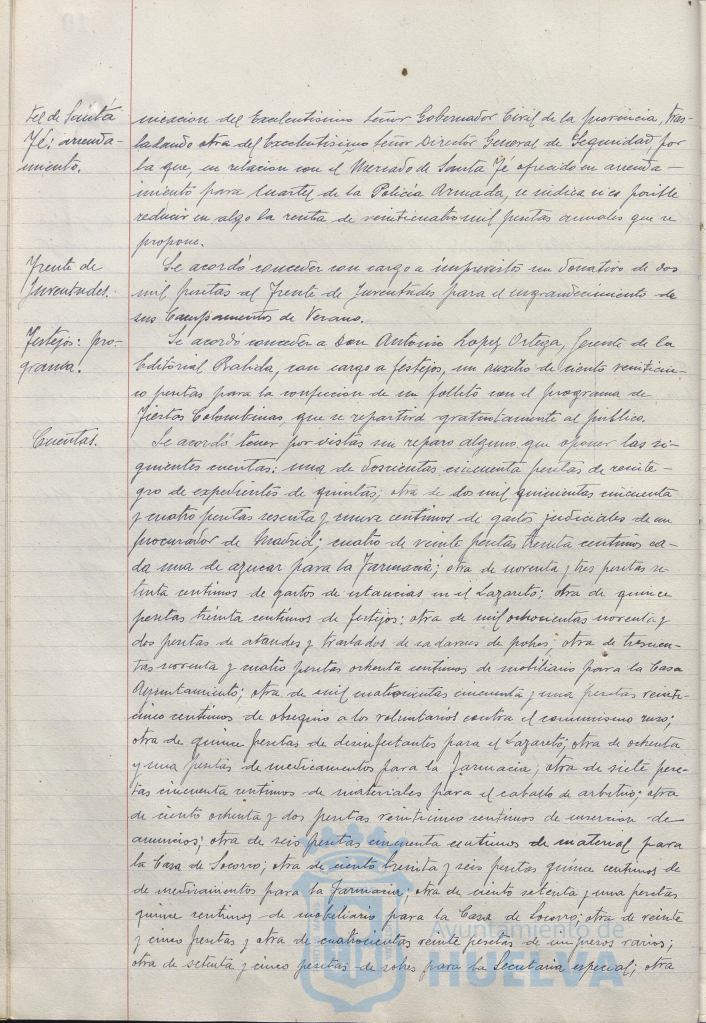 tel de Santa
Fé; arrenda-
miento.
nicacion del Excelentisimo Señor Gobernador Civil de la provincia, tras-
ladando otra del Excelentisimo Señor Director General de Seguridad, por
la que, en relacion con el Mercado de Santa Fé ofrecido en arrenda-
miento para Cuartel de la Policía Armada, se indica si es posible
reducir en algo la renta de veinticuatro mil pesetas anuales que se
propone.
Frente de
Juventudes.
Se acordó conceder con cargo a imprevistos un donativo de dos
mil pesetas al Frente de Juventudes para el engrandecimiento de
sus Campamentos de Verano.
Festejos: pro-
grama.
Se acordó conceder a Don Antonio Lopez Ortega, Gerente de la
Editorial Rabida, con cargo a festejos, un auxilio de ciento veinticin-
co pesetas para la confeccion de un folleto con el programa de
Fiestas Colombinas, que se repartirá gratuitamente al público.
Cuentas.
Se acordó tener por vistas sin reparo alguno que oponer las si-
guientes cuentas: una de doscientas cincuenta pesetas de reinte-
gro de expedientes de quintas; otra de dos mil quinientas cincuenta
y cuatro pesetas sesenta y nueve centimos de gastos judiciales de un
procurador de Madrid; cuatro de veinte pesetas treinta centimos ca-
da una de azucar para la Farmacia; otra de noventa y tres pesetas se-
tenta centimos de gastos de estancias en el Lazareto; otra de quince
pesetas treinta centimos de festejos; otra de mil ochocientas noventa y
dos pesetas de ataudes y traslados de cadaveres de pobres; otra de trescien-
tas noventa y cuatro pesetas ochenta centimos de mobiliario para la Casa
Ayuntamiento; otra de mil cuatrocientas cincuenta y una pesetas veinti-
cinco centimos de obsequio a los voluntarios contra el comunismo ruso;
otra de quince pesetas de desinfectantes para el Lazareto; otra de ochenta
y una pesetas de medicamentos para la Farmacia; otra de siete pese-
tas cincuenta centimos de materiales para el caballo de arbitrios; otra
de ciento ochenta y dos pesetas veinticinco centimos de insercion de
anuncios; otra de seis pesetas cincuenta centimos de material para
la Casa de Socorro; otra de ciento treinta y seis pesetas quince centimos de
de medicamentos para la Farmacia; otra de ciento setenta y una pesetas
quince centimos de mobiliario para la Casa de Socorro; otra de veinte
y cinco pesetas y otra de cuatrocientas veinte pesetas de impresos varios;
otra de setenta y cinco pesetas de sobres para la Secretaria especial; otra
Ayuntamiento de
HUELVA